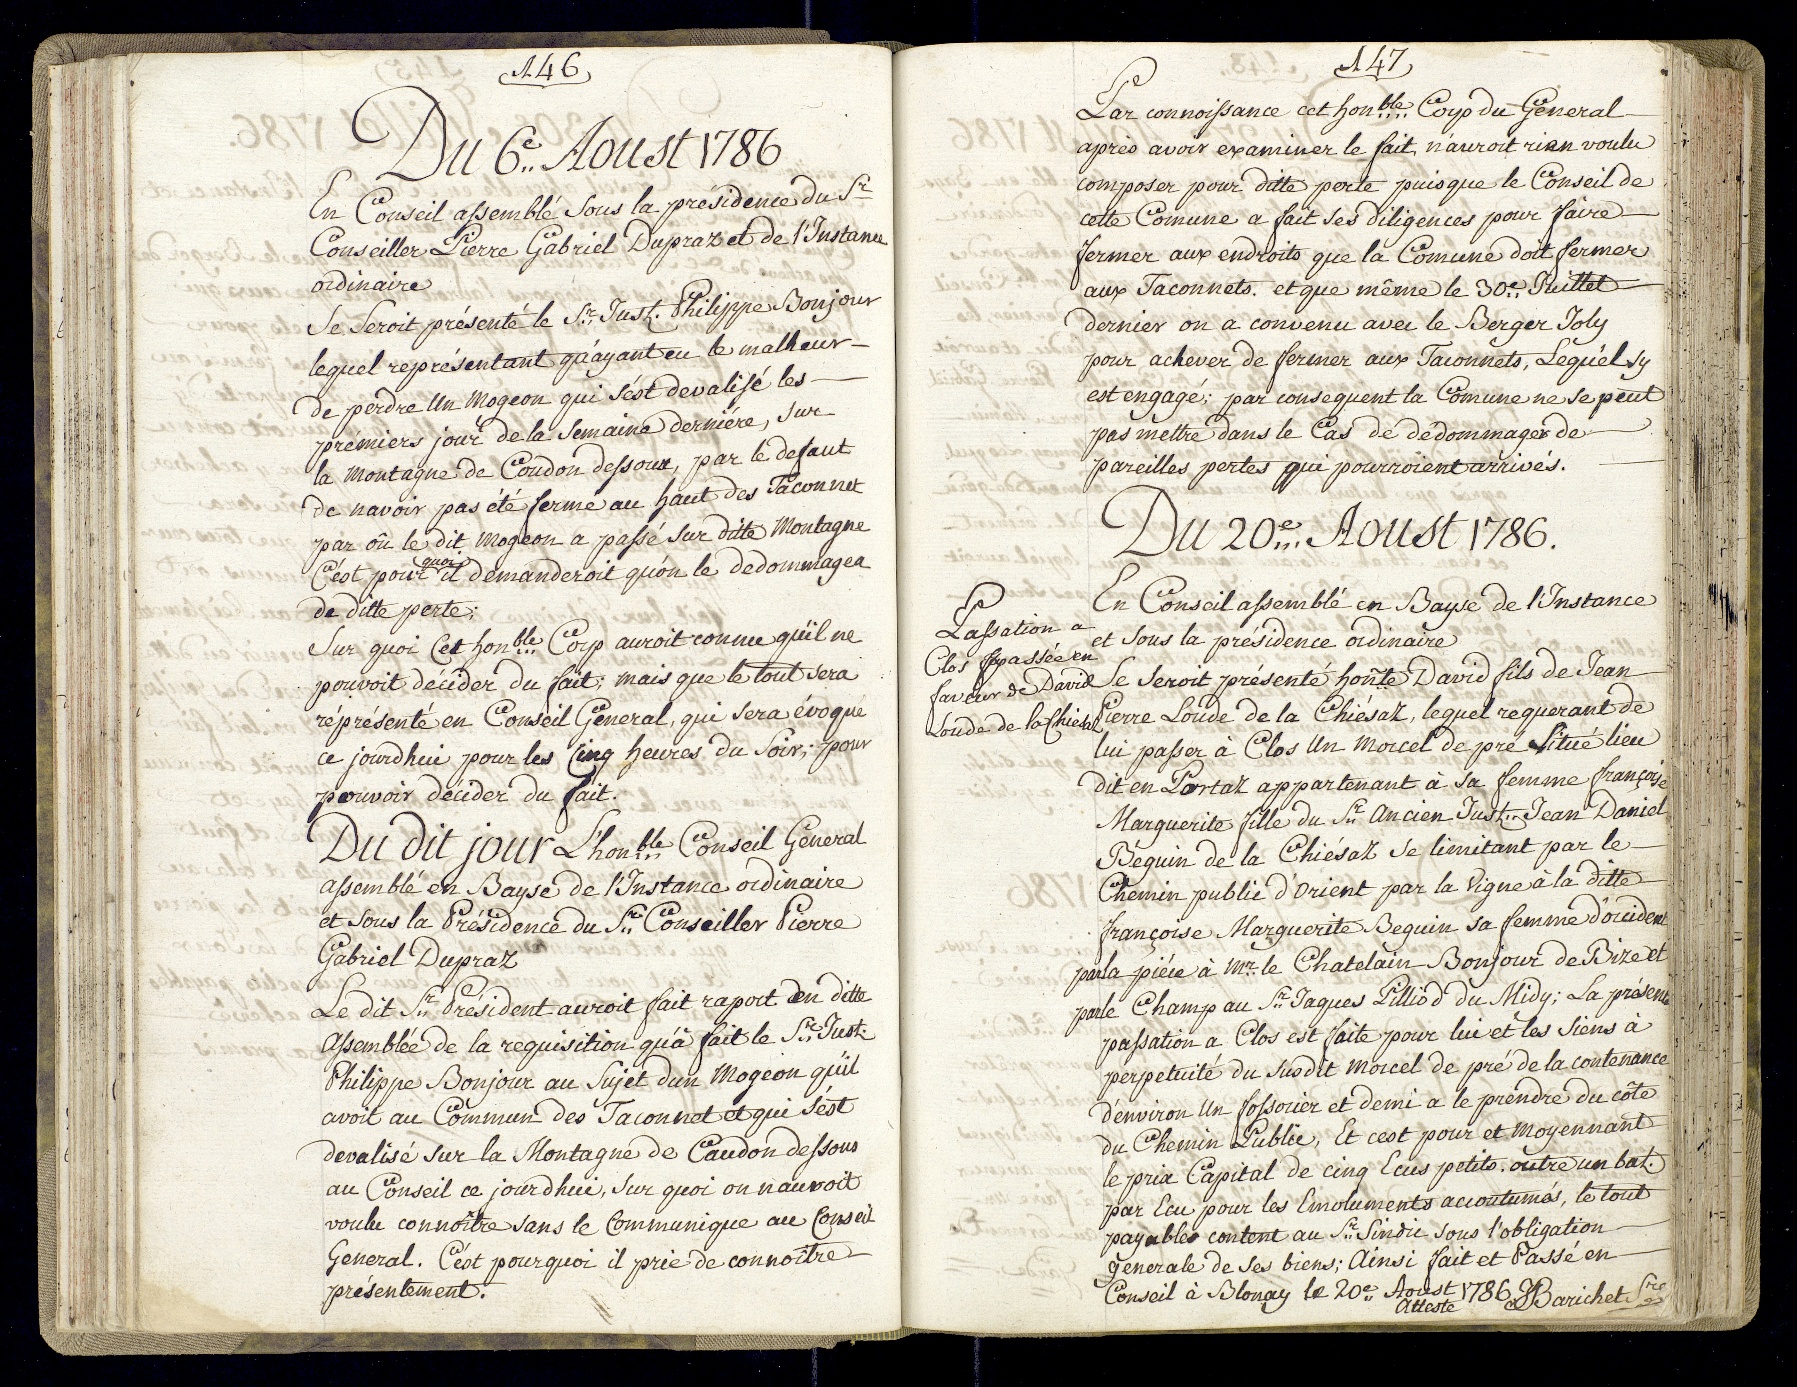 146
Du 6e. Aoust 1786
En Conseil assemblé sous la présidence du Sr
Conseiller Pierre Gabriel Dupraz et de l'Instance
ordinaire
Se seroit présenté le Sr. Just. Philippe Bonjour
lequel représentant qu'ayant eu le malheur
de perdre Un Mogeon qui s'est devalisé les
prémiers jour de la semaine derniére, sur
la montagne de Coudon dessoux, par le defaut
de navoir pas été fermé au haut des Taconnet
par où le dit Mogeon a passé sur ditte Montagne
C'est pour quoi il demanderoit qu'on le dedommagea
de ditte perte;
Sur quoi Cet honble. Corp auroit connu qu'il ne
pouvoit décider du fait; mais que le tout sera
réprésenté en Conseil General, qui sera évoqué
ce jourdhui pour les Cinq heures du Soir; pour
pouvoir décider du fait.
Du dit jour L'honble. Conseil General
assemblé en Bayse de l'Instance ordinaire
et sous la Présidence du Sr. Conseiller Pierre
Gabriel Dupraz
Le dit Sr. Président auroit fait raport en ditte
Assemblée de la requisition qu'à fait le Sr. Just.
Philippe Bonjour au Sujet dun Mogeon qu'il
avoit au Commun des Taconnet et qui s'est
devalisé sur la Montagne de Caudon dessous
au Conseil ce jourdhui, sur quoi on nauroit
voulu connoître sans le Communique au Conseil
General. C'est pourquoi il prie de connoître
présentement.
147
Par connoissance cet honble. Corp du General
après avoir examiner le fait, n'auroit rien voulu
composer pour ditte perte puisque le Conseil de
cette Comune a fait ses diligences pour faire
fermer aux endroits que la Comune doit fermer
aux Taconnets. et que même le 30e. Juillet
dernier on a convenu avec le Berger Joly
pour achever de fermer aux Taconnets, Lequ'el sy
est engagé; par consequent la Comune ne se peut
pas mettre dans le Cas de dédommager de
pareilles pertes qui pourroient arrivés.
Du 20e. Aoust 1786.
Passation a
Clos passée en
faveur de David
Loude de la Chiésaz
En Conseil assemblé en Bayse de l'Instance
et sous la présidence ordinaire
Se seroit présenté honte David fils de Jean
Pierre Loude de la Chiésaz, lequel requerant de
lui passer à Clos Un Morcel de pré situé lieu
dit en Portaz appartenant à sa femme françoise
Marguerite fille du Sr. Ancien Just. Jean Daniel
Béguin de la Chiésaz se limitant par le
Chemin public d'Orient par la Vigne à la ditte
françoise Marguerite Beguin sa femme d'occident
par la piéce à Mr. le Chatelain Bonjour de Bize et
par le Champ au Sr. Jaques Pilliod du Midy; La présente
passation a Clos est faite pour lui et les siens à
perpetuité du susdit morcel de pré de la contenance
d'environ Un fossorier et demi a le prendre du côte
du Chemin Public, Et cest pour et moyennant
le prix Capital de cinq Ecus petits. outre un bat.
par Ecu pour les Emoluments accoutumés, le tout
payables content au Sr. Sindic sous l'obligation
generale de ses biens; Ainsi fait et Passé en
Conseil à Blonay le 20e. Aoust 1786
Atteste Barichet Sre